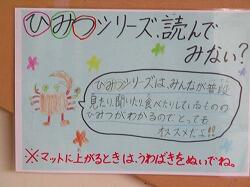 ひみつシリーズ、読んで
みない？
ひみつシリーズは、みんなが普段
見たり、聞いたり、食べたりしているものの
ひみつがわかるのでとっても
オススメだよ!!
※マットに上がるときは、うわばきをぬいでね。